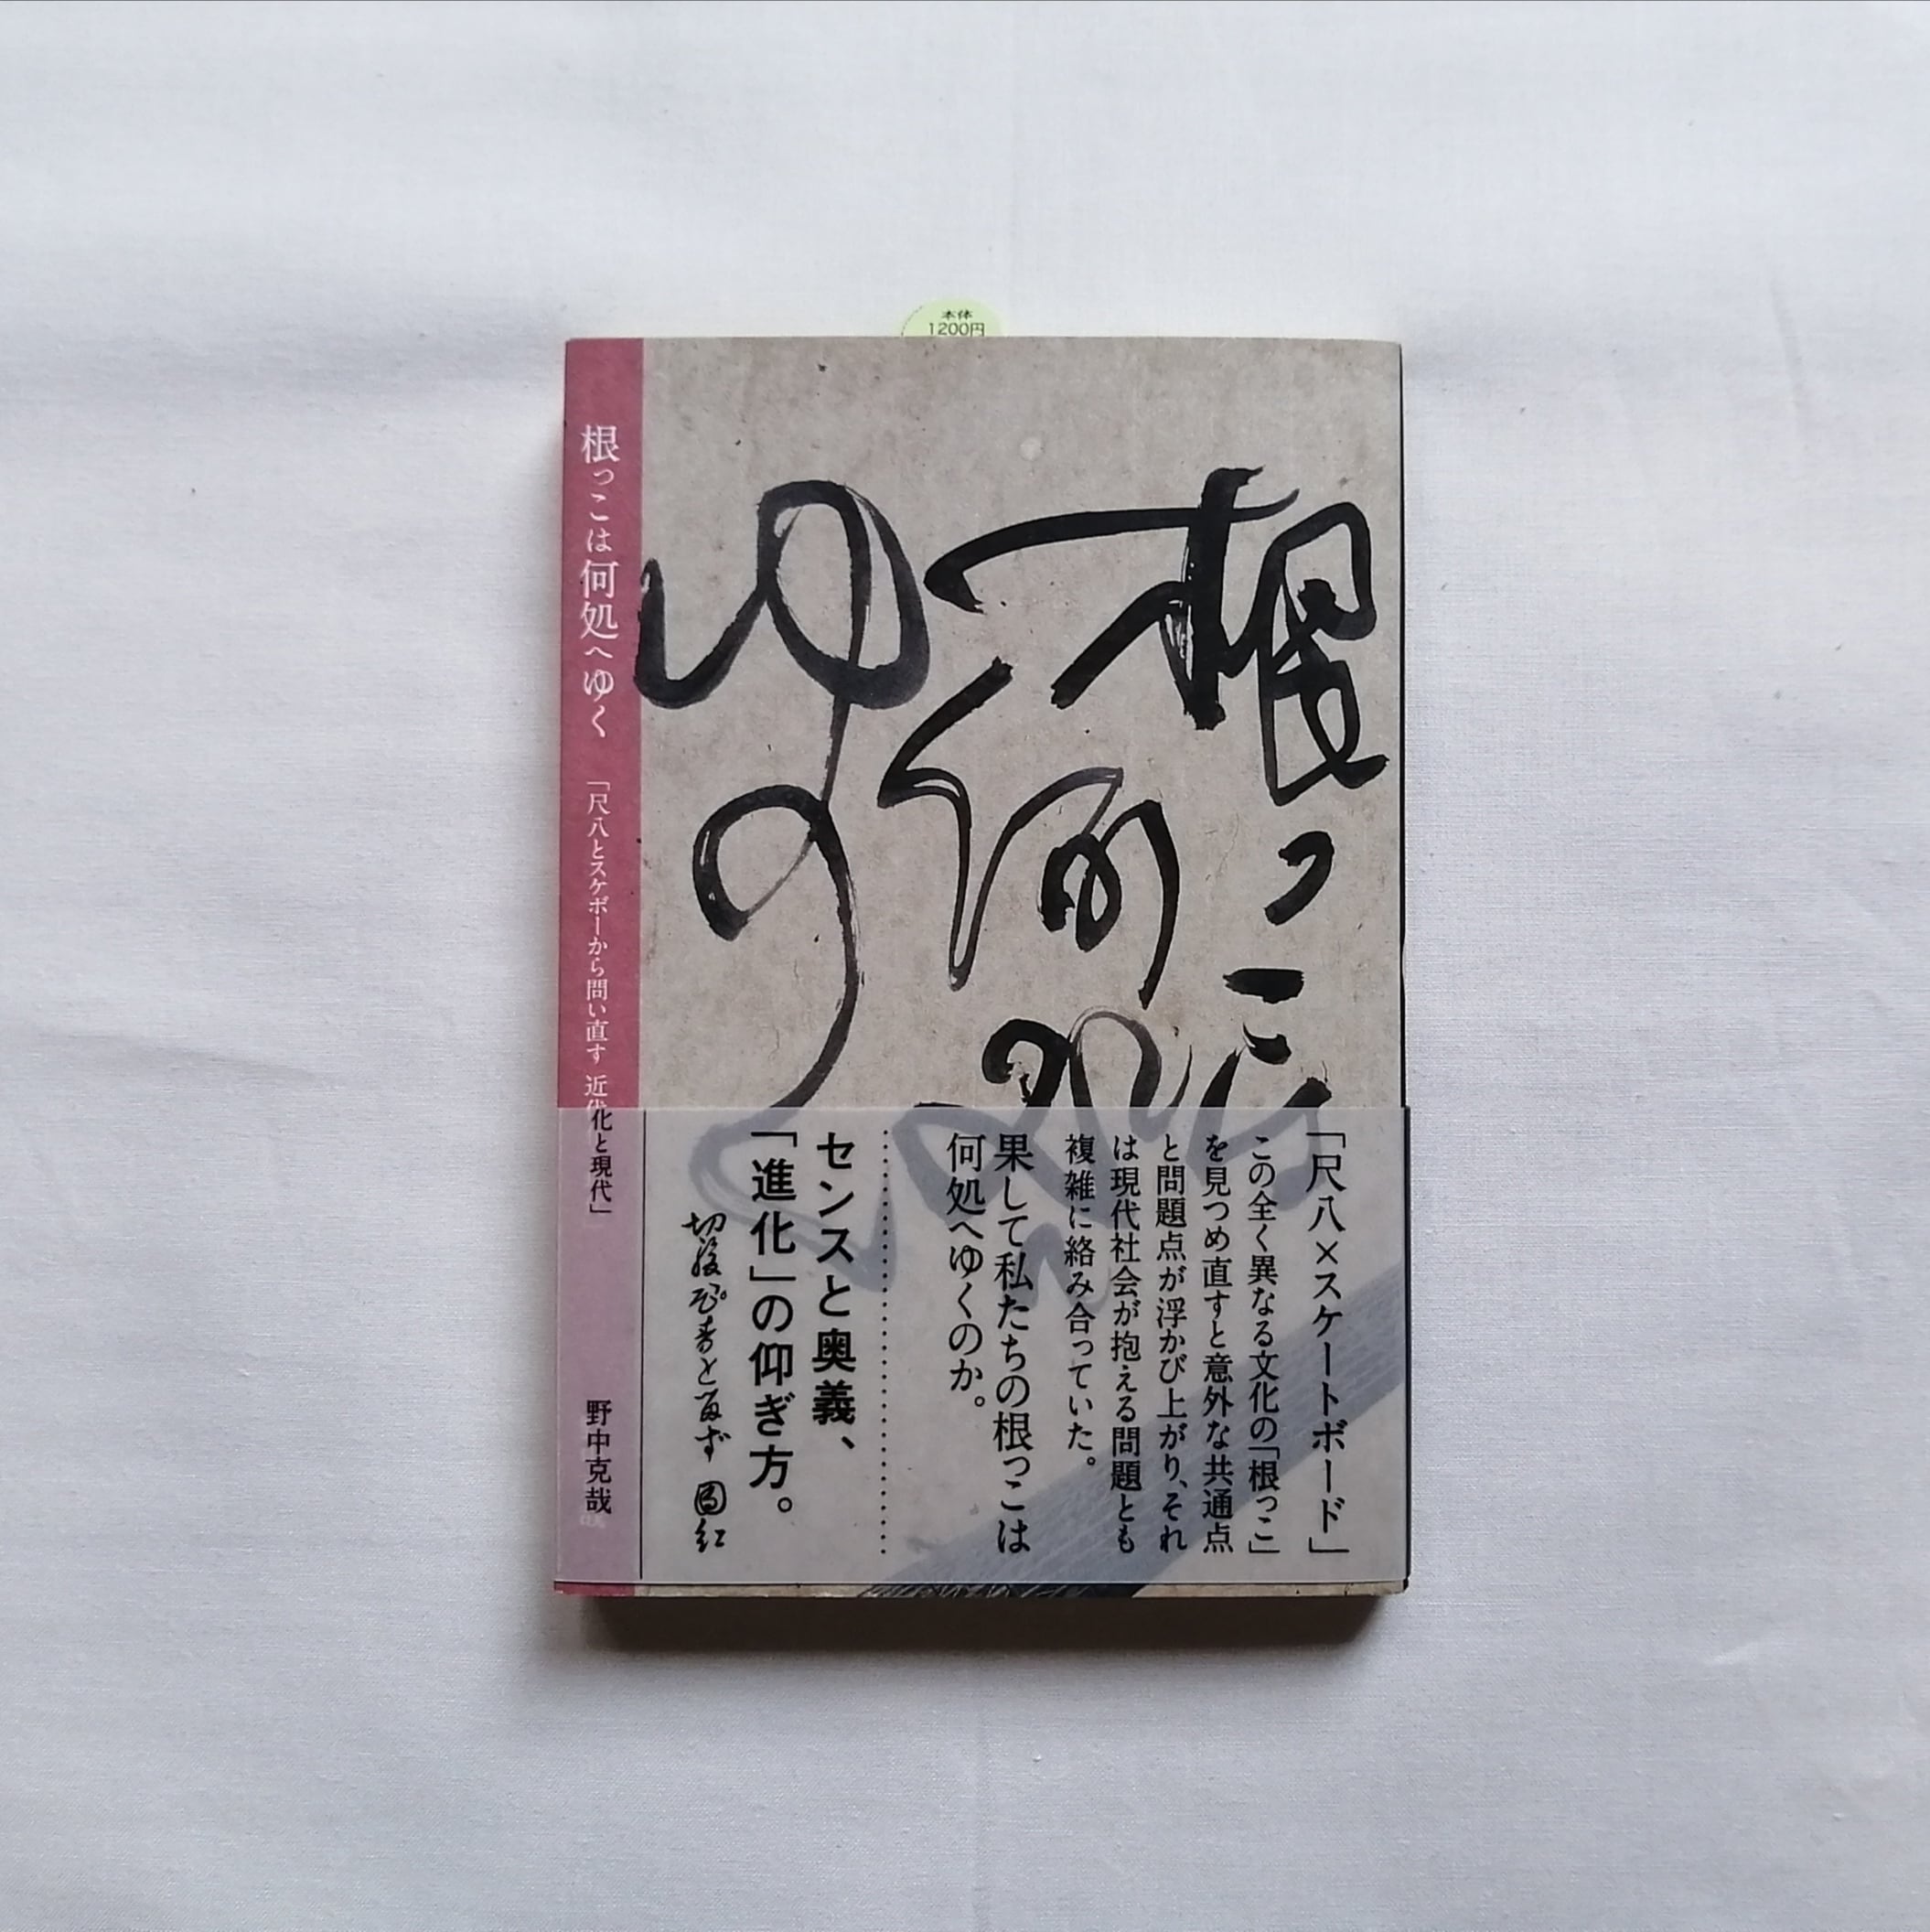 本体
1200円
根っこは何処へゆく
「尺八とスケボーから問い直す 近代化と現代」
野中克哉
根っこは
何処へ
ゆく
「尺八×スケートボード」
この全く異なる文化の「根っこ」
を見つめ直すと意外な共通点
と問題点が浮かび上がり、それ
は現代社会が抱える問題とも
複雑に絡み合っていた。
果して私たちの根っこは
何処へゆくのか。
センスと奥義、
「進化」の仰ぎ方。